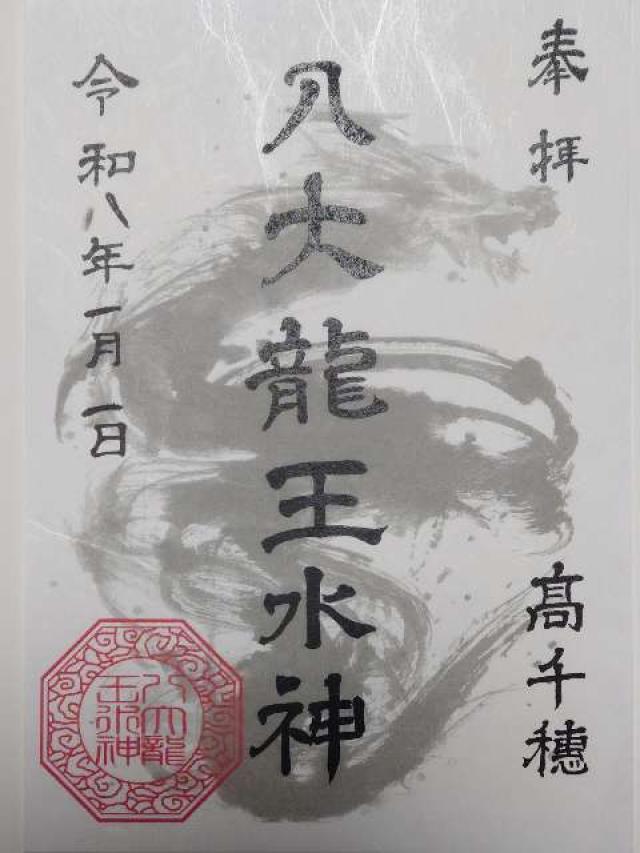 奉拝
髙千穂
八大龍王水神
令和八年一月一日
八大龍
王水神